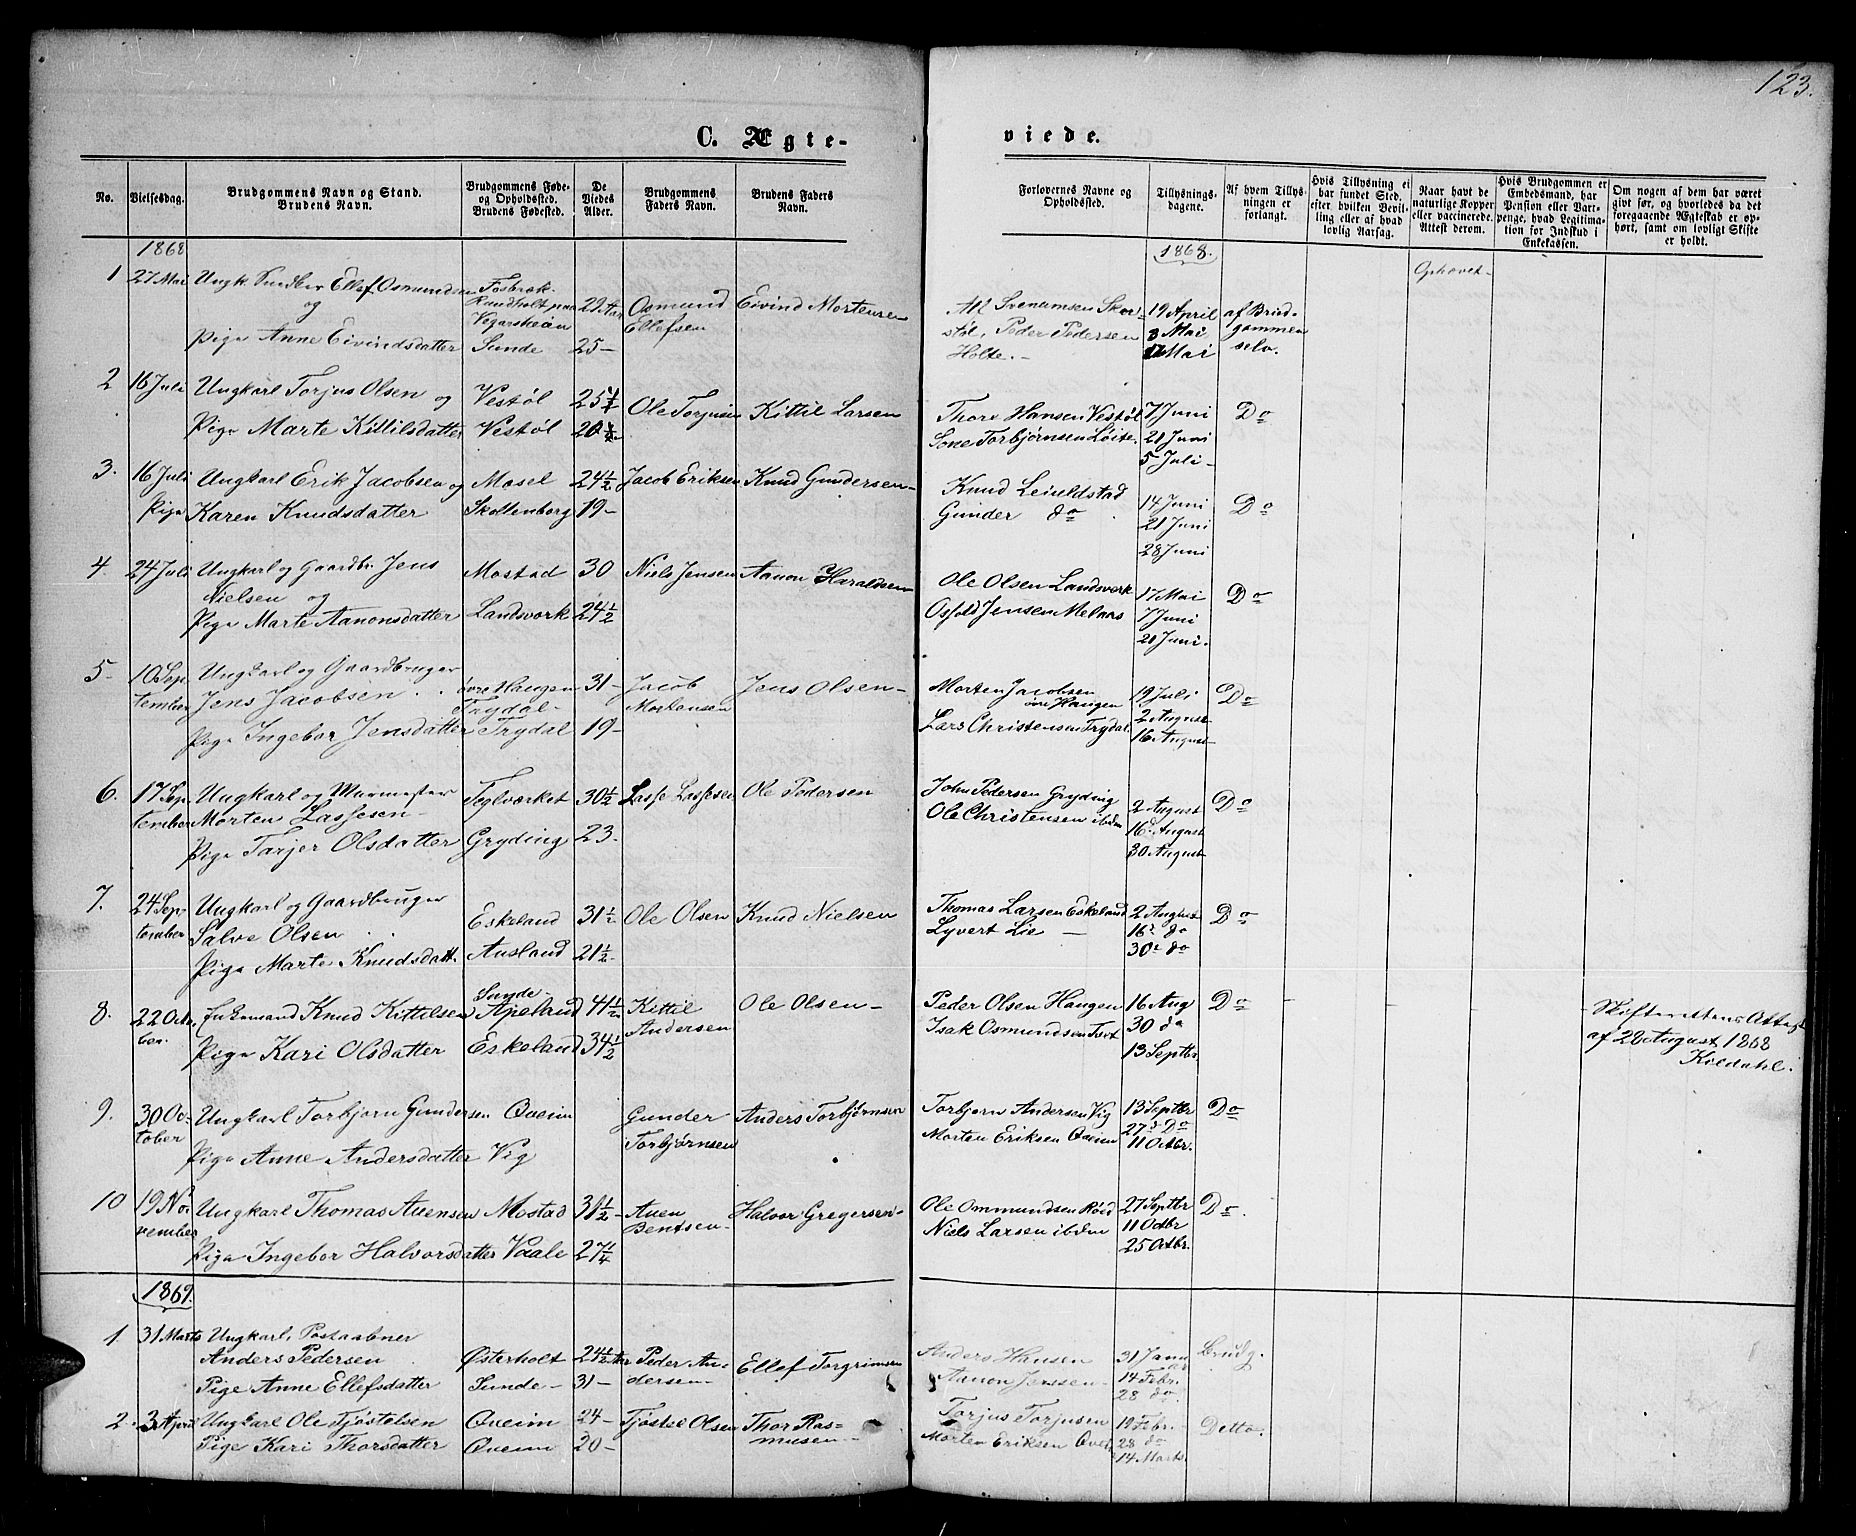 123.
C. Ægte-
viede.
No.
Vielsesdag.
Brudgommens Navn og Stand.
Brudens Navn.
Brudgommens Føde-
og Opholdssted.
Brudens Fødested.
De
Viedes
Alder.
Brudgommens
Faders Navn.
Brudens Faders
Navn.
Forlovernes Navne og
Opholdssted.
Tillysnings-
dagene.
Af hvem Tillys-
ningen er
forlangt.
Hvis Tillysning ei
har fundet Sted,
efter hvilken Bevil-
ling eller af hvad
lovlig Aarsag.
Naar havt de
naturlige Kopper
eller vaccinerede.
Attest derom.
Hvis Brudgommen er
Embedsmand, har
Pension eller Vart-
penge, hvad Legitima-
tion for Indskud i
Enkekassen.
Om nogen af dem har været
gift før, og hvorledes da det
foregaaende Ægteskab er op-
hørt, samt om lovligt Skifte
er holdt.
1868
1868.
Ophævet
1 27 Mai Ungk. Ellef Osmundsen
og
Pige Anne Eivindsdatter
Vegarsheien
Sunde
29 Aar
25-
Osmund
Ellefsen
Eivind Mortensen
Peder Pedersen
Holte.-
19 April
3 Mai
Mai
af Brud-
gommen
selv.
2 16 Juli Ungkarl Torjus Olsen og
Pige Marte Kittilsdatter
Vestøl
Vestøl
25 1/2
20 1/2
Ole Torjusen
Kittil Larsen
Thore Hansen Vestøl
Sone Torbjørnsen Løite.
7 Juni
21 Juni
5 Juli-
Do
3. 16 Juli Ungkarl Erik Jacobsen og
Pige Karen Knudsdatter
Mosel
Skottenborg
24 1/2
19-
Jacob Eriksen
Knud Gundersen-
Knud
Gunder do
14 Juni
21 Juni
28 Juni
Do
4. 24 Juli Ungkarl og Gaardbr. Jens
Nielsen og
Pige Marte Aanonsdatter
Mostad
Landsverk
30
24 1/2
Niels Jensen
Aanon Haraldsen
Ole Olsen Landsverk
Jensen Melaas
17 Mai
7 Juni
21 Juni.
Do
5- 10 Sep-
tember
Ungkarl og Gaardbruger
Jens Jacobsen
Pige Ingebor Jensdatter
øvre Haugen
Trydal-
Trydal
31-
19-
Jacob
Mortensen
Jens Olsen-
Morten Jacobsen
øvre Haugen
Lars Christensen Trydal.
19 Juli
2 August
16 August-
Do
6. 17 Sep-
tember
Ungkarl og Murmester
Morten Lassesen-
Pige Tarjer Olsdatter
Teglværket
Gryding
30 1/2
23.
Lasse Lassesen
Ole Pedersen
John Pedersen Gryding
Ole Christensen ibdm
2 August
16. August
30 August
Do
7. 24 Sep-
tember
Ungkarl og Gaardbruger
Salve Olsen
Pige Marte Knudsdatt.
Eskeland
Ausland
31 1/2
21 1/2
Ole Olsen
Knud Nielsen
Thomas Larsen Eskeland
Lyvert Lie -
2 August
16. do
30. do
Do
8. 22 Octo-
ber.
Enkemand Knud Kittilsen
Pige Kari Olsdatter
Sunde-
Apeland
Eskeland
41 1/2
34 1/2
Kittil
Andersen
Ole Olsen-
Peder Olsen Haugen
Isak Osmundsen
16 Aug
30 do
13 Septbr
Do
Skifterettens Attest
af 28 August 1868
Kildahl.
9. 30 Oc-
tober
Ungkarl Torbjørn Gundersen
Pige Anne Andersdatter
Qveim
Vig
Gunder
Torbjørnsen
Anders Torbjørnsen
Torbjørn Andersen Vig
Morten Eriksen Qveim
13 Septbr
27 Do
11 Octbr.
Do
10 19 No-
vember
Ungkarl Thomas Auensen
Pige Ingebor Halvorsdatter
Mostad
Vaale
31 1/2
27 1/4
Auen
Bentsen-
Halvor Gregersen-
Ole Ommundsen Røed
Niels Larsen ibdm
27 Septbr
11 Octbr
25 Octbr.
Do.
1869.
1 31 Marts Ungkarl, Postaabner
Anders Pedersen
Pige Anne Ellefsdatter
Østerholt
Sunde-
24 1/2 Aar
31-
Peder An-
dersen-
Ellef Torgrimsen
Anders Hansen
Aanon Jenssen-
31 Janu
14 Febr.
28 do
Brudg.
2. 3 April Ungkarl Ole Tjøstelsen
Pige Kari Thorsdatter
Qveim
Qveim
24-
20-
Tjøstel Olsen
Thor Ras-
musen-
Torjus Torjusen
Morten Eriksen Qveim
19 Febr.
28 do
14 Marts.
Detto.